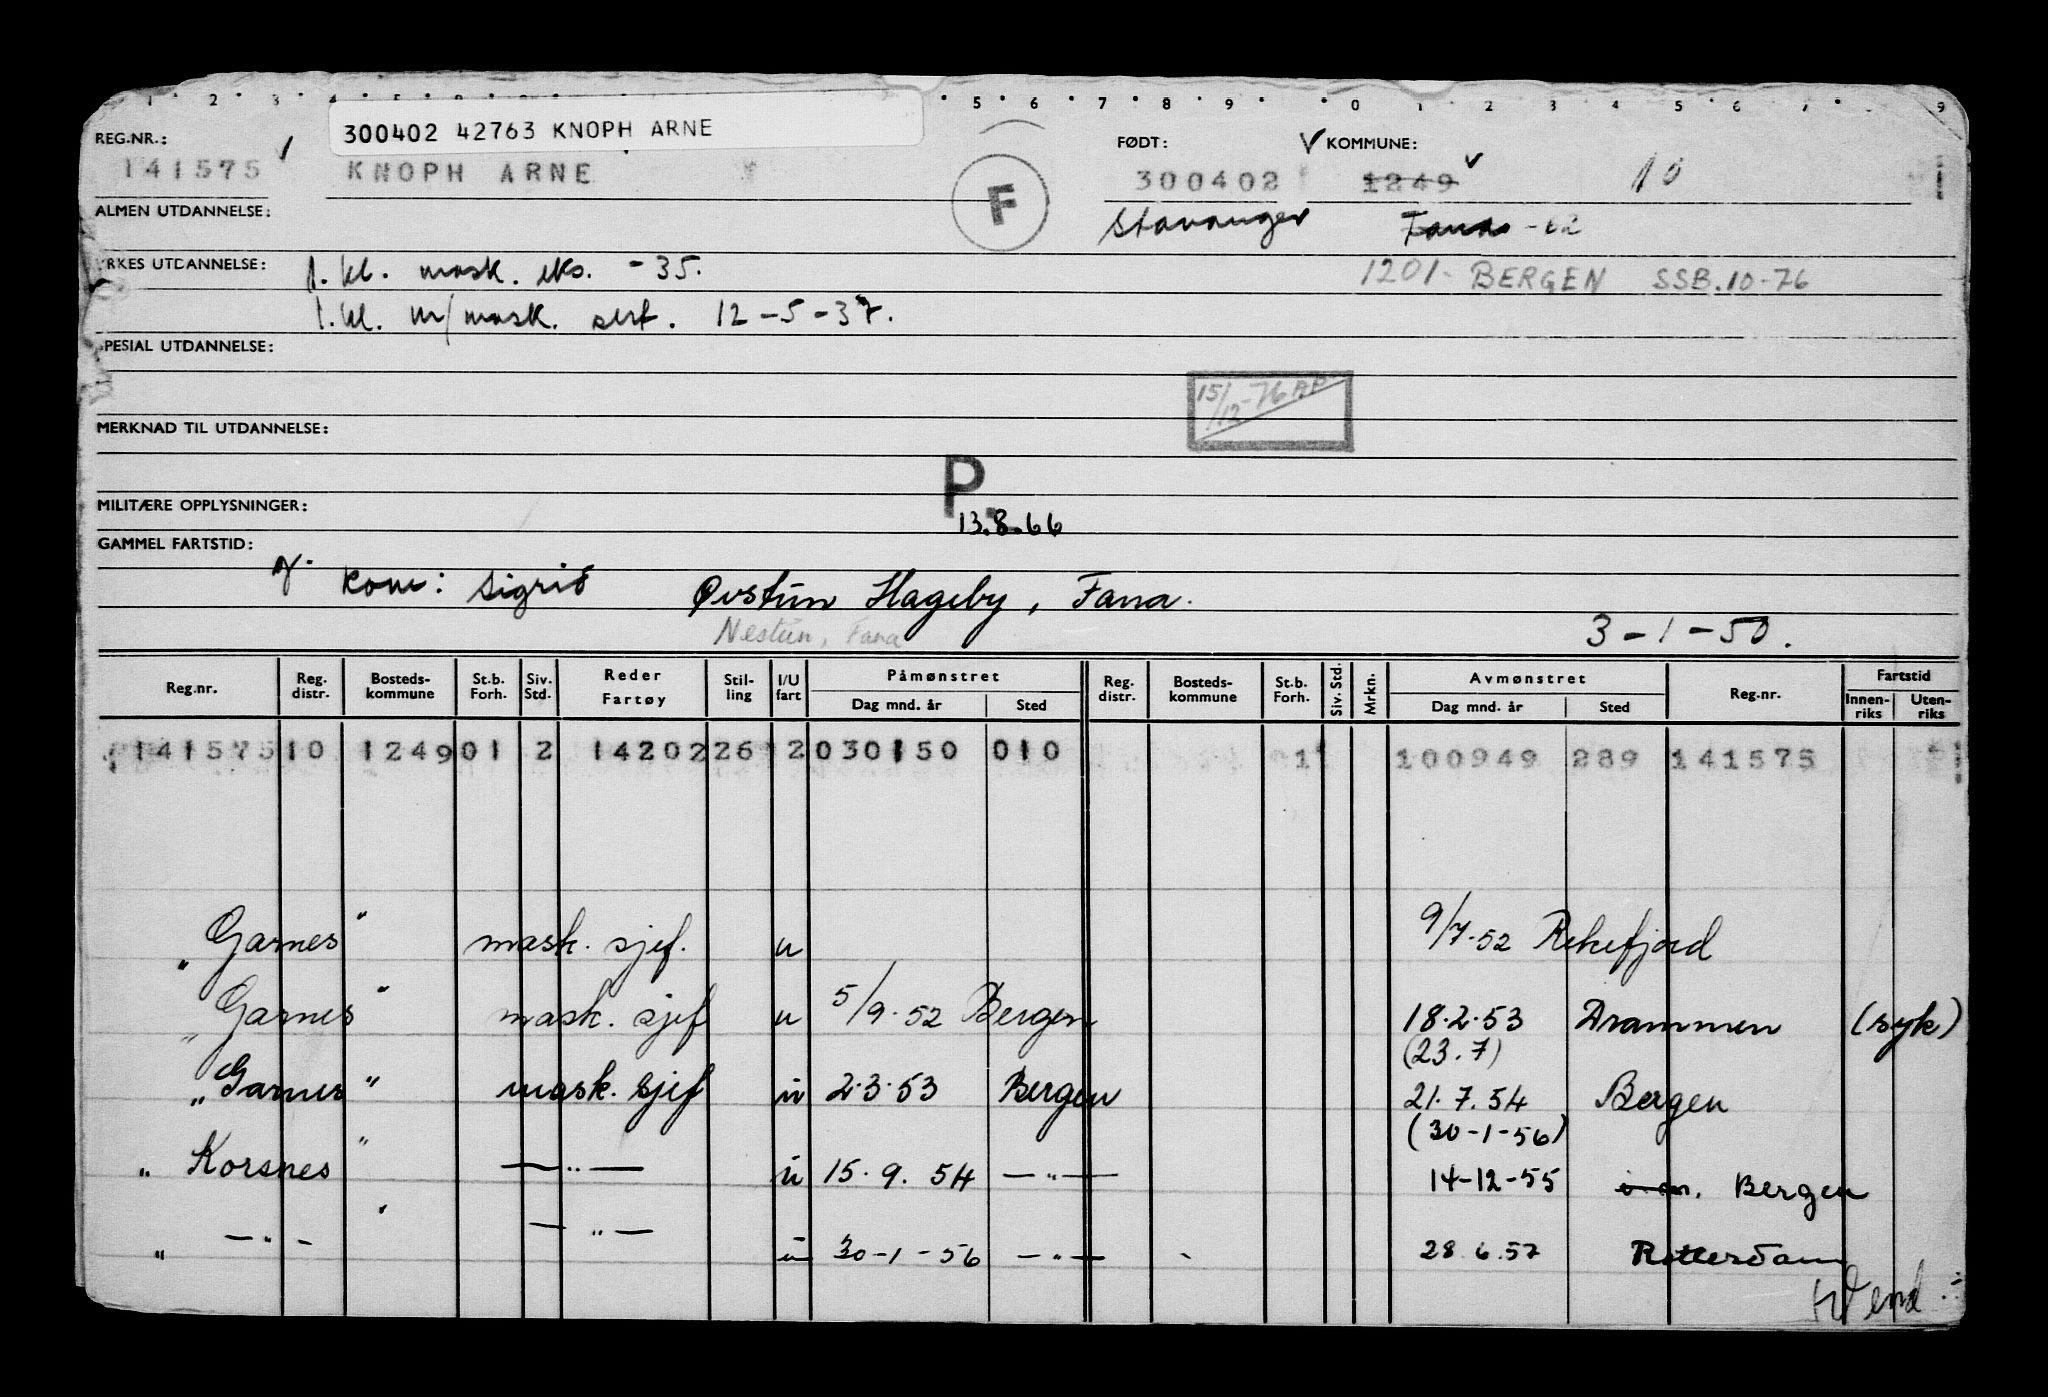 1 2 3 4 5 5 6 7 8 9 0 1 2 3 4 5 6 7 9
300402 42763 KNOPH ARNE
REG.NR.: FØDT: KOMMUNE:
141575 KNOPH ARNE F 300402 1249 10
ALMEN UTDANNELSE: Stavanger Fana -62
YRKES UTDANNELSE: 1. kl. mask. eks. -35. 1201- BERGEN SSB.10-76
1. kl. m/mask. sert. 12-5-37.
SPESIAL UTDANNELSE:
15/12-76
MERKNAD TIL UTDANNELSE:
P.
MILITÆRE OPPLYSNINGER: 13.8.66
GAMMEL FARTSTID:
g. kone: Sigrid Øvstun Hageby, Fana.
Nestun, Fana 3-1-50.
Reg.nr. Reg. distr. Bosteds-kommune St.b. Forh. Siv. Std. Reder Fartøy Stil-ling I/U fart Påmønstret Dag mnd. år Sted Reg. distr. Bosteds-kommune St.b. Forh. Siv. Std. Mrkn. Avmønstret Dag mnd. år Sted Reg.nr. Fartstid Innen-riks Uten-riks
141575 10 1249 01 2 14202 26 2 030150 010 1 100949 289 141575
"Garnes" mask. sjef. u 9/7.52 Rekefjord
"Garnes" mask. sjef u 5/9.52 Bergen 18.2.53 Drammen (syk)
(23.7)
"Garnes" mask. sjef u 2.3.53 Bergen 21.7.54 Bergen
(30-1-56)
"Korsnes" —"— u 15.9.54 —"— 14-12-55 Bergen
" —"— " —"— u 30-1-56 —"— 28.6.57 Rotterdam
Vend